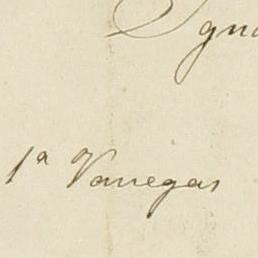 Igna
1ª Vanegas